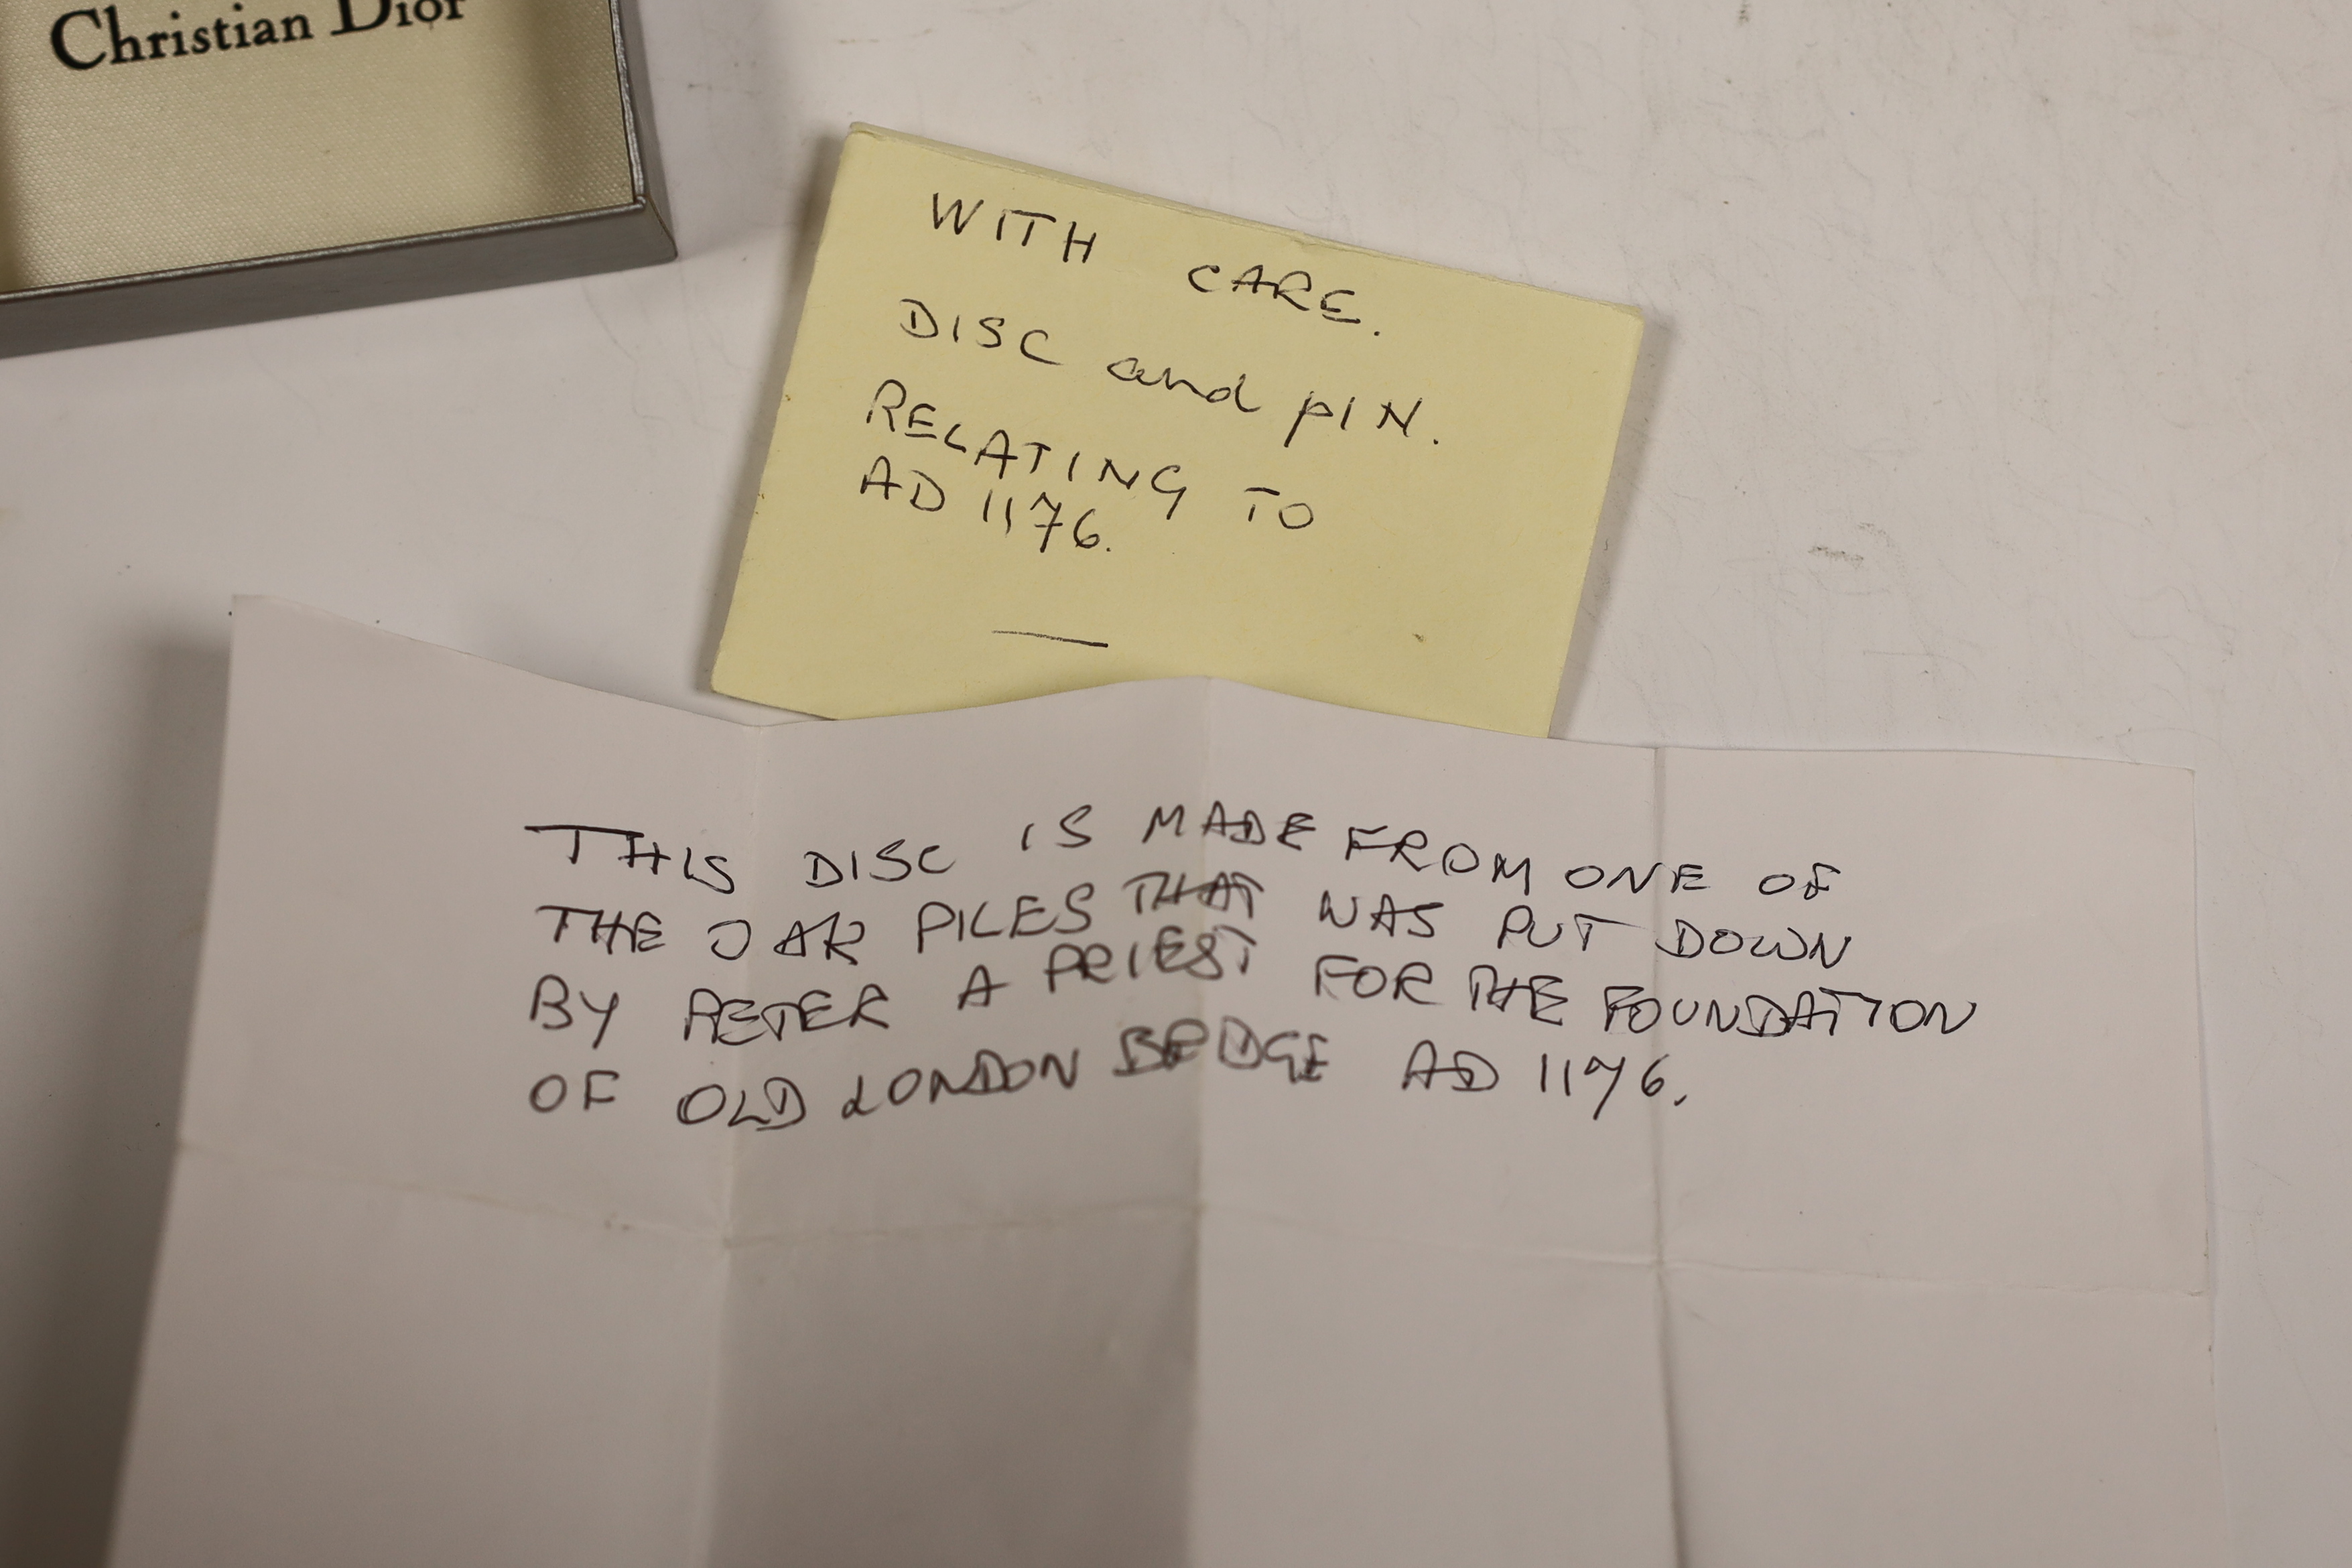 Christian Dior
WITH CARE.
DISC and PIN.
RELATING TO
AD 1176.
THIS DISC IS MADE FROM ONE OF
THE OAK PILES THAT WAS PUT DOWN
BY PETER A PRIEST FOR THE FOUNDATION
OF OLD LONDON BRDGE AD 1176.